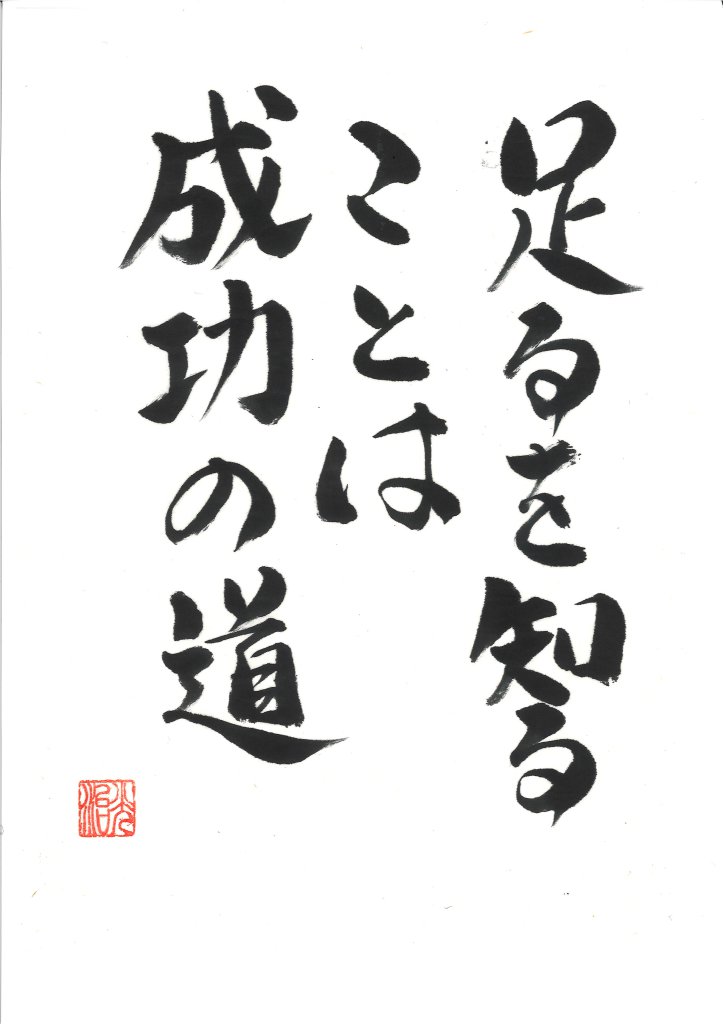 足るを知る
ことは
成功の道